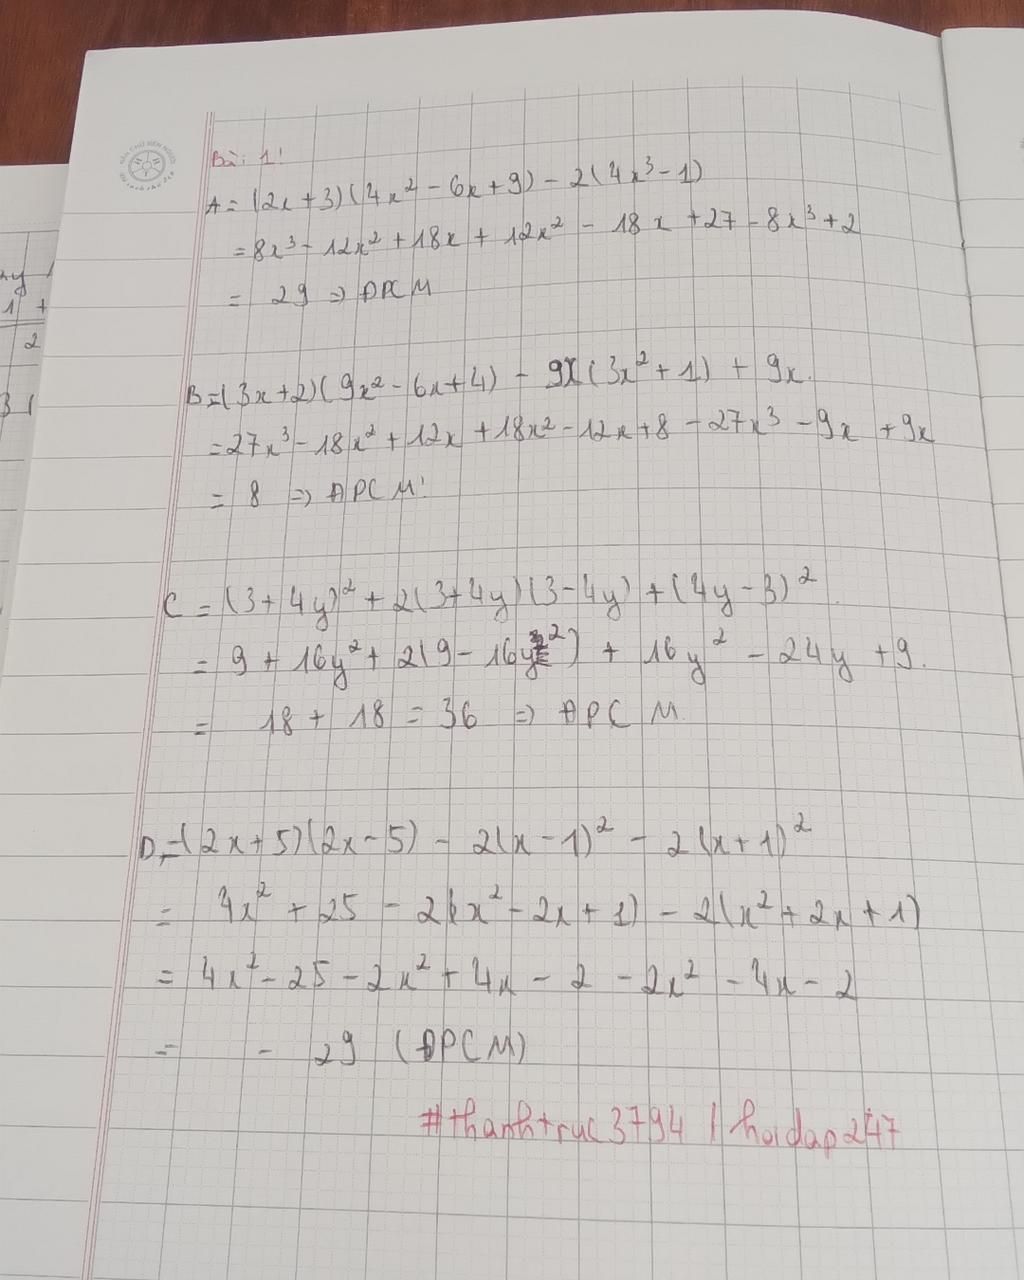 Bài 1!
A = (2x + 3)(4x² - 6x + 9) - 2(4x³ - 1)
= 8x³ - 12x² + 18x + 12x² - 18x + 27 - 8x³ + 2
= 29 => ĐPCM
B = (3x + 2)(9x² - 6x + 4) - 9x(3x² + 1) + 9x.
= 27x³ - 18x² + 12x + 18x² - 12x + 8 - 27x³ - 9x + 9x
= 8 => ĐPCM!
C = (3 + 4y)² + 2(3 + 4y)(3 - 4y) + (4y - 3)²
= 9 + 16y² + 2(9 - 16y²) + 16y² - 24y + 9.
= 18 + 18 = 36 => ĐPCM.
D = (2x + 5)(2x - 5) - 2(x - 1)² - 2(x + 1)²
= 4x² + 25 - 2(x² - 2x + 1) - 2(x² + 2x + 1)
= 4x² - 25 - 2x² + 4x - 2 - 2x² - 4x - 2
= - 29 (ĐPCM)
#thanhtruc3794 / hoidap247